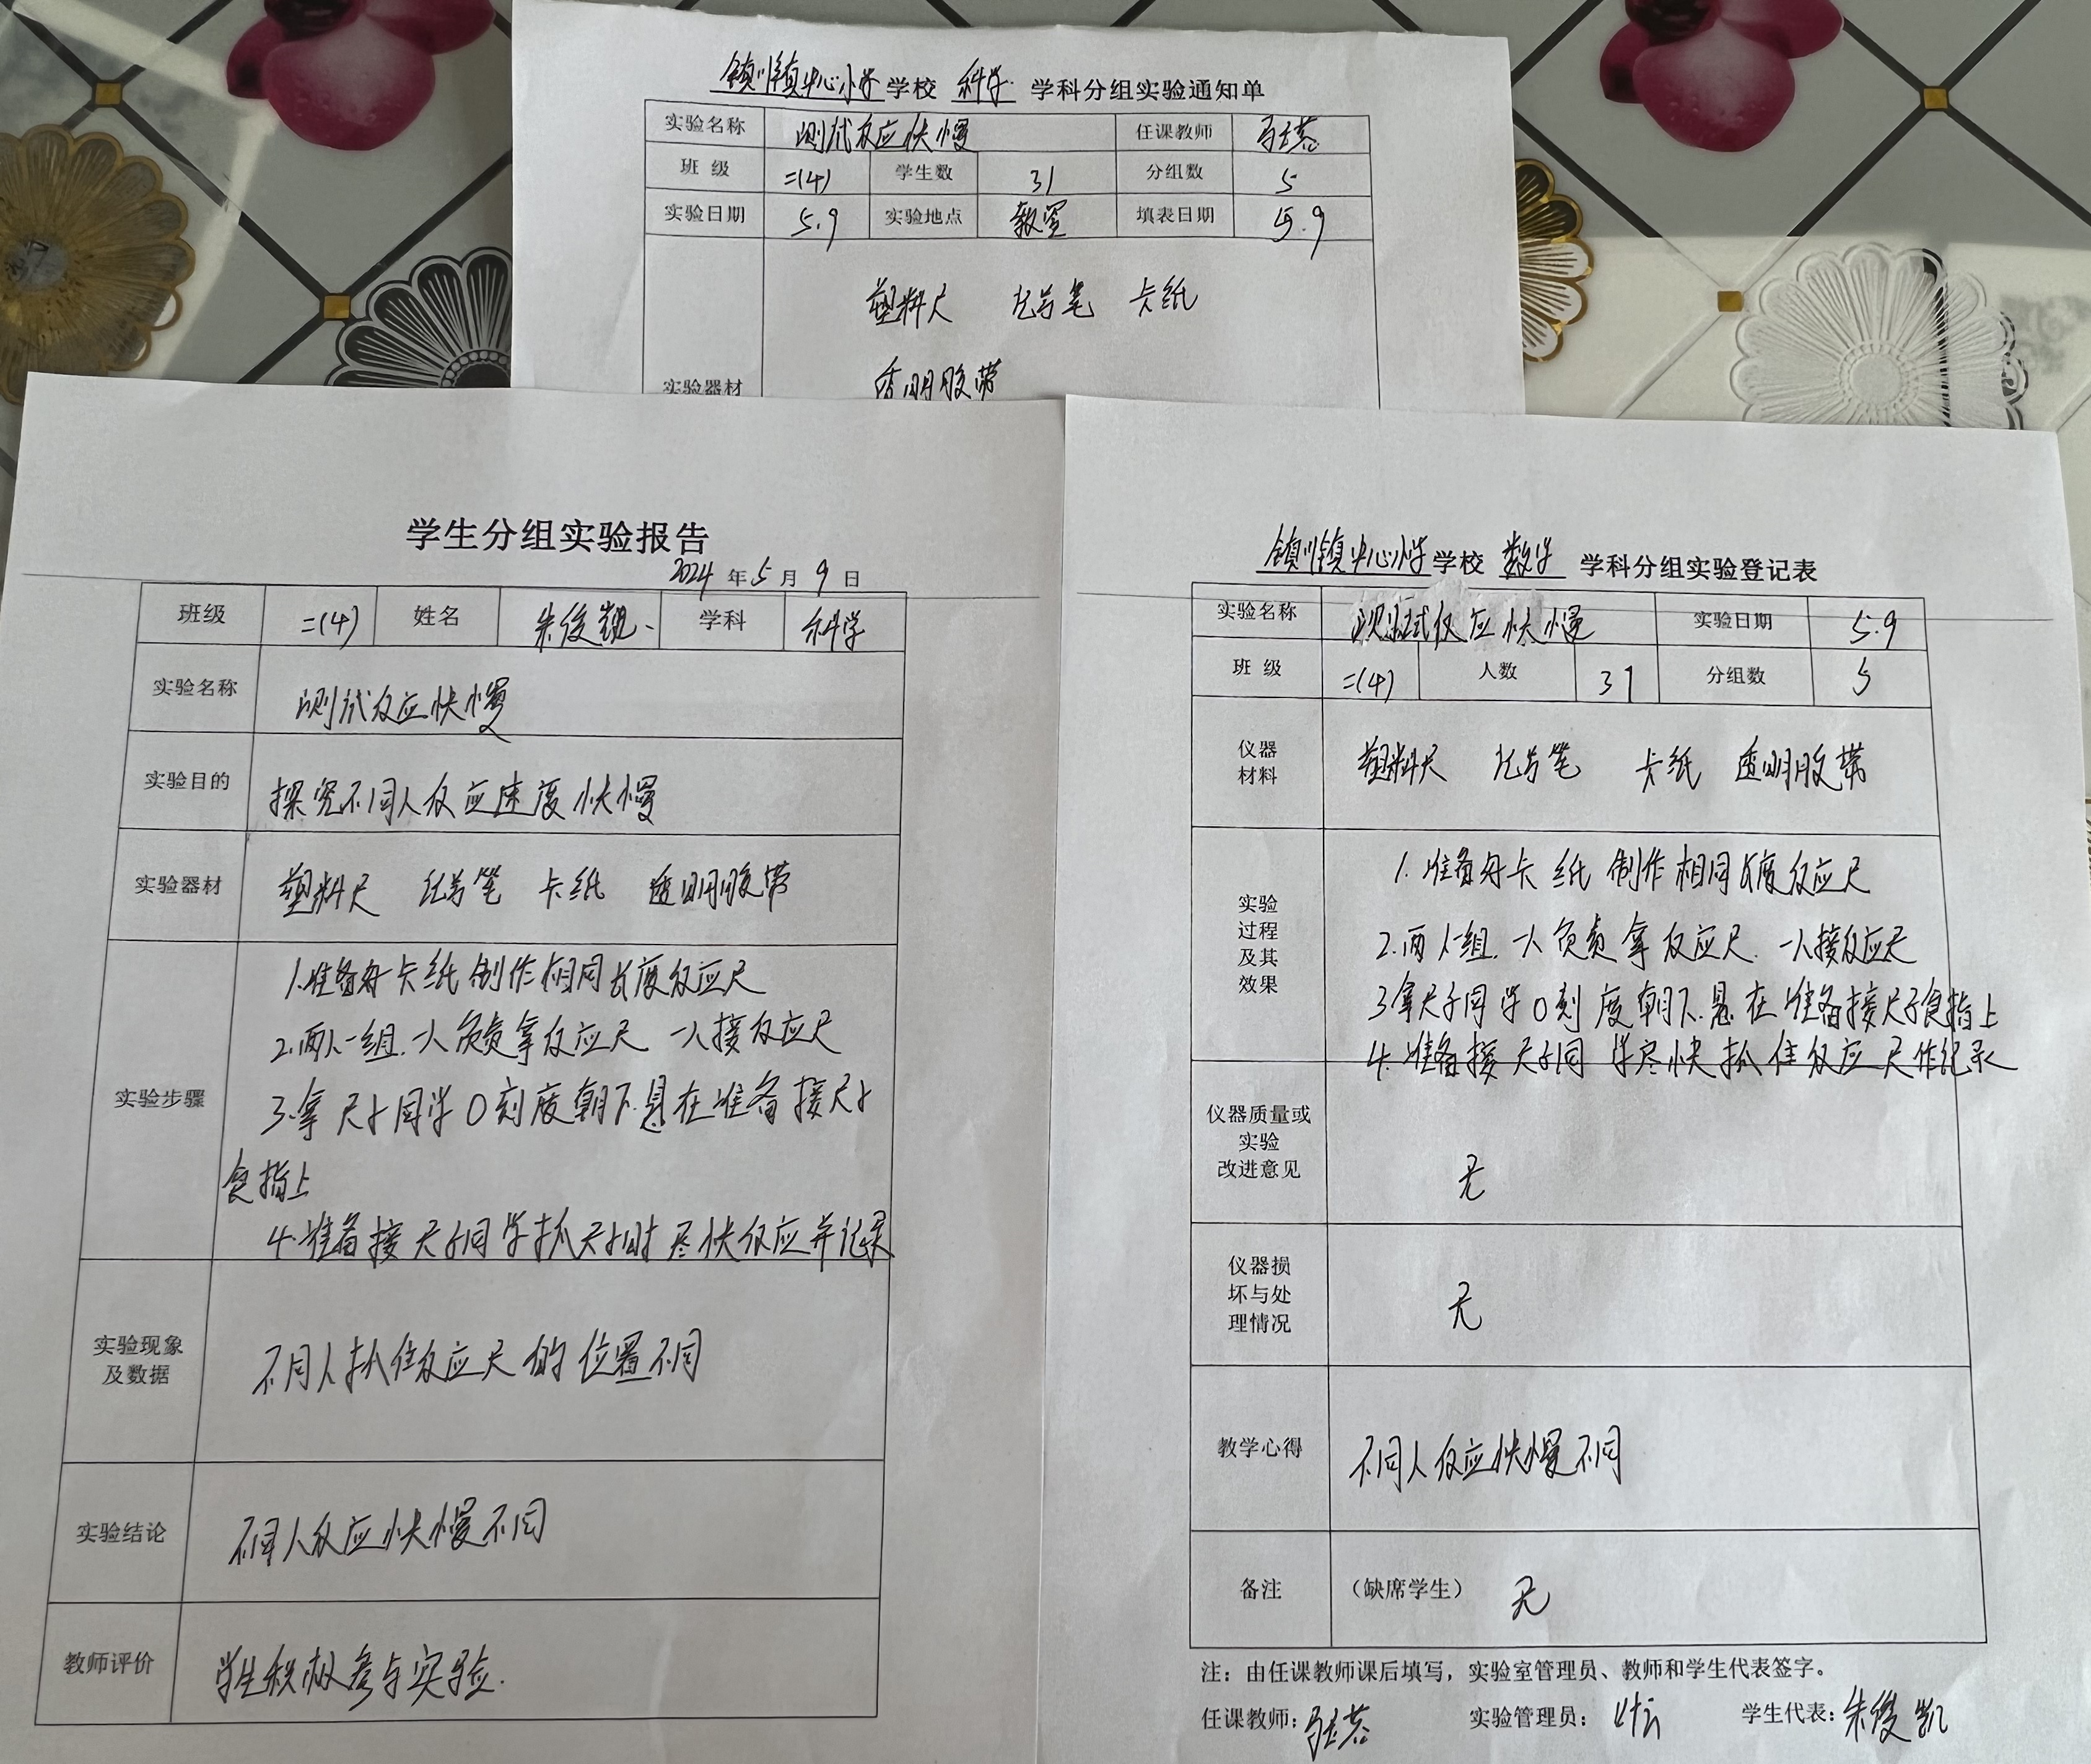 镇川镇中心小学学校 科学 学科分组实验通知单
实验名称 测试反应快慢 任课教师
班 级 二(4) 学生数 31 分组数 5
实验日期 5.9 实验地点 教室 填表日期 5.9
塑料尺 记号笔 卡纸
实验器材 透明胶带
学生分组实验报告
2024 年 5 月 9 日
班级 二(4) 姓名 朱俊凯 学科 科学
实验名称 测试反应快慢
实验目的 探究不同人反应速度快慢
实验器材 塑料尺 记号笔 卡纸 透明胶带
实验步骤
1.准备好卡纸 制作相同长度反应尺
2.两人一组.一人负责拿反应尺 一人接反应尺
3.拿尺子同学0刻度朝下.悬在准备接尺子
食指上
4.准备接尺子同学抓尺子时尽快反应并记录
实验现象
及数据
不同人抓住反应尺的位置不同
实验结论 不同人反应快慢不同
教师评价 学生积极参与实验.
镇川镇中心小学学校 数学 学科分组实验登记表
实验名称 测试反应快慢 实验日期 5.9
班 级 二(4) 人数 31 分组数 5
仪器
材料
塑料尺 记号笔 卡纸 透明胶带
实验
过程
及其
效果
1.准备好卡纸 制作相同长度反应尺
2.两人一组.一人负责拿反应尺.一人接反应尺
3拿尺子同学0刻度朝下.悬在准备接尺子食指上
4.准备接尺子同学尽快抓住反应尺作记录
仪器质量或
实验
改进意见
无
仪器损
坏与处
理情况
无
教学心得 不同人反应快慢不同
备注 （缺席学生） 无
注：由任课教师课后填写，实验室管理员、教师和学生代表签字。
任课教师： 实验管理员： 学生代表：朱俊凯